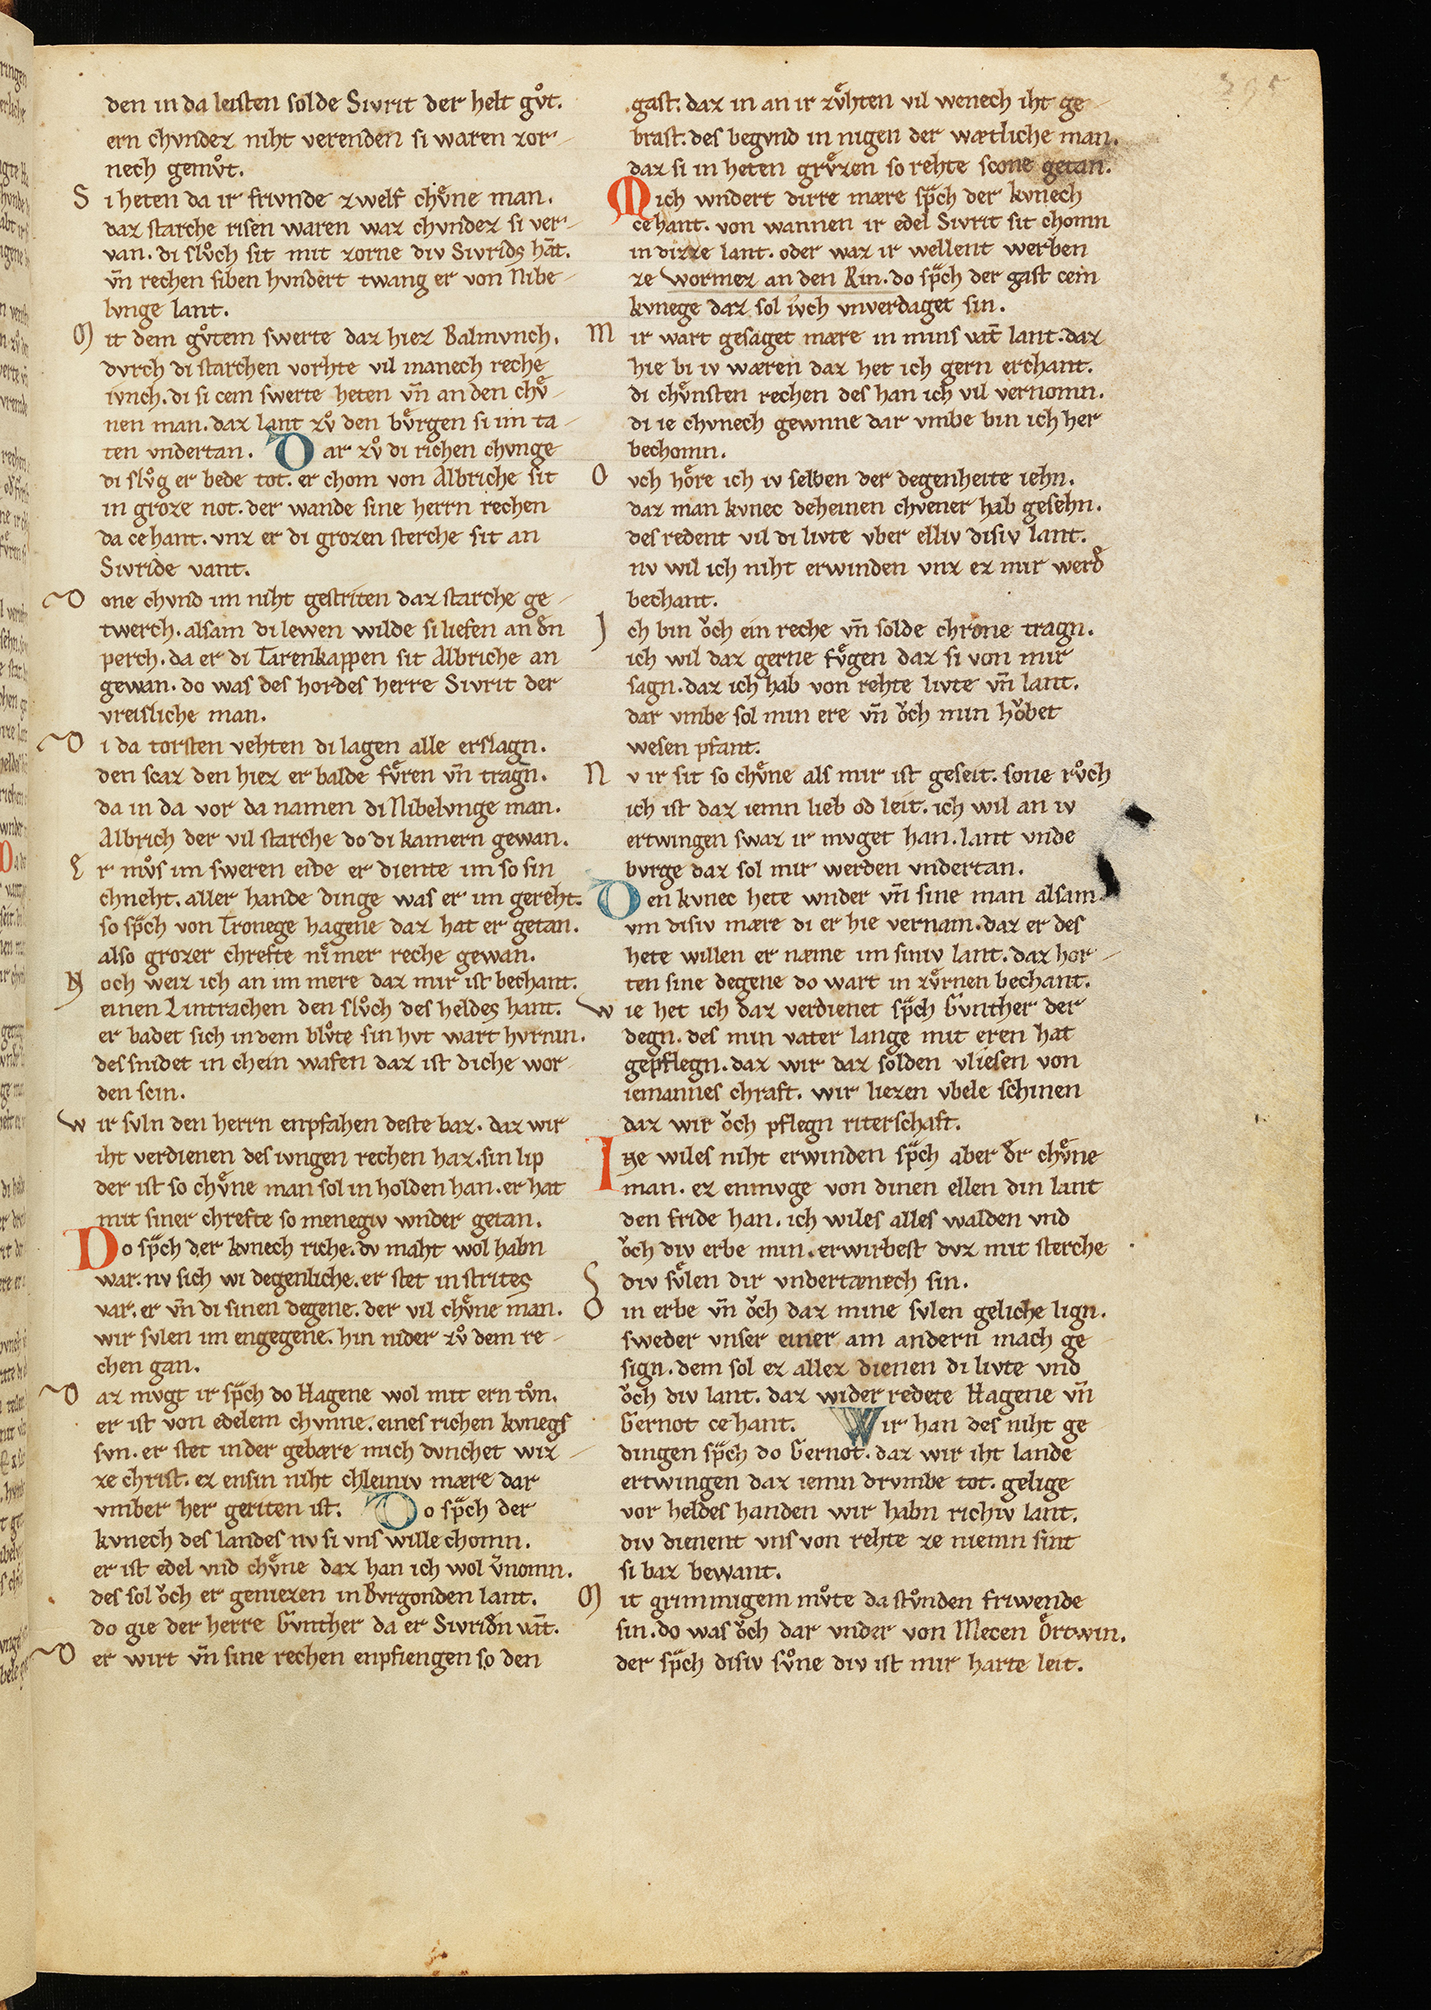 395
den in da leisten solde Siurit der helt gůt.
ern chvndez niht verenden si waren zor-
nech gemůt.
S i heten da ir friunde zwelf chůne man.
daz starche risen waren waz chvndez si ver-
van. di slůch sit mit zorne div Siurids hāt.
vn̄ rechen siben hvndert twang er von Nibe-
lvnge lant.
M it dem gůtem swerte daz hiez Balmvnch.
dvrch di starchen vorhte vil manech reche
ivnch. di si cem swerte heten vn̄ an den chů-
nen man. daz lant zů den bůrgen si im ta-
ten vndertan. Dar zů di richen chvnge
di slůg er bede tot. er chom von Albriche sit
in groze not. der wande sine herrn rechen
da ce hant. vnz er di grozen sterche sit an
Siuride vant.
D one chvnd im niht gestriten daz starche ge-
twerch. alsam di lewen wilde si liefen an dn̄
perch. da er di Tarenkappen sit Albriche an
gewan. do was des hordes herre Siurit der
vreisliche man.
D i da torsten vehten di lagen alle erslagn.
den scaz den hiez er balde fůren vn̄ tragn.
da in da vor da namen di Nibelvnge man.
Albrich der vil starche do di kamern gewan.
E r můs im sweren eide er diente im so sin
chneht. aller hande dinge was er im gereht.
so sp̄ch von Tronege hagene daz hat er getan.
also grozer chrefte nim̄er reche gewan.
N och weiz ich an im mere daz mir ist bechant.
einen Lintrachen den slůch des heldes hant.
er badet sich in dem blůte sin hvt wart hvrnin.
des snidet in chein wafen daz ist diche wor-
den scin.
W ir svln den herrn enpfahen deste baz. daz wir
iht verdienen des ivngen rechen haz. sin lip
der ist so chůne man sol in holden han. er hat
mit siner chrefte so menegiv wnder getan.
Do sp̄ch der kvnech riche. dv maht wol habn
war. nv sich wi degenliche. er stet in strites
var. er vn̄ di sinen degene. der vil chůne man.
wir svlen im engegene. hin nider zů dem re-
chen gan.
D az mvgt ir sp̄ch do Hagene wol mit ern tůn.
er ist von edelem chvnne. eines richen kvnegs
svn. er stet in der gebære mich dvnchet wiz-
ze christ. ez ensin niht chleiniv mære dar
vmber her geriten ist. Do sp̄ch der
kvnech des landes nv si vns wille chomn.
er ist edel vnd chůne daz han ich wol v̄nomn.
des sol ǒch er geniezen in Bvrgonden lant.
do gie der herre Gvnther da er Siuridn vāt.
D er wirt vn̄ sine rechen enpfiengen so den
gast. daz in an ir zůhten vil wenech iht ge-
brast. des begvnd in nigen der wætliche man.
daz si in heten grůzen so rehte scone getan.
Mich wndert dirre mære sp̄ch der kvnech
ce hant. von wannen ir edel Siurit sit chomn
in dizze lant. oder waz ir wellent werben
ze Wormez an den Rin. do sp̄ch der gast cem
kvnege daz sol ivch vnverdaget sin.
M ir wart gesaget mære in mins vāt̄ lant. daz
hie bi iv wæren daz het ich gern erchant.
di chůnsten rechen des han ich vil vernomn.
di ie chvnech gewnne dar vmbe bin ich her
bechomn.
O vch hǒre ich iv selben der degenheite iehn.
daz man kvnec deheinen chvener hab gesehn.
des redent vil di livte vber elliv disiv lant.
nv wil ich niht erwinden vnz ez mir werd̄
bechant.
I ch bin ǒch ein reche vn̄ solde chrone tragn.
ich wil daz gerne fůgen daz si von mir
sagn. daz ich hab von rehte livte vn̄ lant.
dar vmbe sol min ere vn̄ ǒch min hǒbet
wesen pfant.
N v ir sit so chůne als mir ist geseit. sone růch
ich ist daz iemn lieb od leit. ich wil an iv
ertwingen swaz ir mvget han. lant vnde
bvrge daz sol mir werden vndertan.
Den kvnec hete wnder vn̄ sine man alsam
vm disiv mære di er hie vernam. daz er des
hete willen er næme im siniv lant. daz hor-
ten sine degene do wart in zůrnen bechant.
W ie het ich daz verdienet sp̄ch Gvnther der
degn. des min vater lange mit eren hat
gepflegn. daz wir daz solden vliesen von
iemannes chraft. wir liezen vbele schinen
daz wir ǒch pflegn riterschaft.
Ine wiles niht erwinden sp̄ch aber dr̄ chůne
man. ez enmvge von dinen ellen din lant
den fride han. ich wiles alles walden vnd
ǒch div erbe min. erwirbest dvz mit sterche
div sůlen dir vndertænech sin.
D in erbe vn̄ ǒch daz mine svlen geliche lign.
sweder vnser einer am andern mach ge-
sign. dem sol ez allez dienen di livte vnd
ǒch div lant. daz wider redete Hagene vn̄
Gernot ce hant. Wir han des niht ge-
dingen sp̄ch do Gernot. daz wir iht lande
ertwingen daz iemn drvmbe tot. gelige
vor heldes handen wir habn richiv lant.
div dienent vns von rehte ze niemn sint
si baz bewant.
M it grimmigem můte da stůnden friwende
sin. do was ǒch dar vnder von Mecen Ǒrtwin.
der sp̄ch disiv sůne div ist mir harte leit.